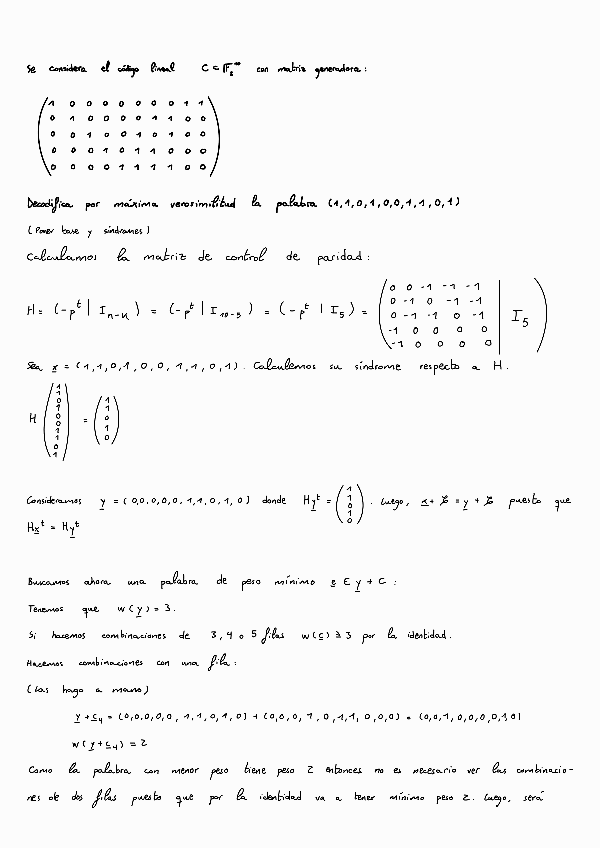 Se considera el código lineal C ⊂ F₂¹⁰ con matriz generadora:
1 0 0 0 0 0 0 0 1 1
0 1 0 0 0 0 1 1 0 0
0 0 1 0 0 1 0 1 0 0
0 0 0 1 0 1 1 0 0 0
0 0 0 0 1 1 1 1 0 0
Decodifica por máxima verosimilitud la palabra (1,1,0,1,0,0,1,1,0,1)
(Poner base y síndromes)
Calculamos la matriz de control de paridad:
H = (-Pᵗ | I n-k) = (-Pᵗ | I 10-5) = (-Pᵗ | I₅) =
0 0 -1 -1 -1
0 -1 0 -1 -1
0 -1 -1 0 -1
-1 0 0 0 0
-1 0 0 0 0
I₅
Sea x = (1,1,0,1,0,0,1,1,0,1). Calculemos su síndrome respecto a H.
H (1 1 0 1 0 0 1 1 0 1) = (1 1 0 1 0)
Consideramos y = (0,0,0,0,0,1,1,0,1,0) donde Hyᵗ = (1 1 0 1 0). Luego, x + C = y + C puesto que
Hxᵗ = Hyᵗ
Buscamos ahora una palabra de peso mínimo e ∈ y + C:
Tenemos que w(y) = 3.
Si hacemos combinaciones de 3, 4 o 5 filas w(c) ≥ 3 por la identidad.
Hacemos combinaciones con una fila:
(Las hago a mano)
y + c₄ = (0,0,0,0,0,1,1,0,1,0) + (0,0,0,1,0,1,1,0,0,0) = (0,0,1,0,0,0,0,1,0)
w(y+c₄) = 2
Como la palabra con menor peso tiene peso 2 entonces no es necesario ver las combinacio-
nes de dos filas puesto que por la identidad va a tener mínimo peso 2. Luego, será